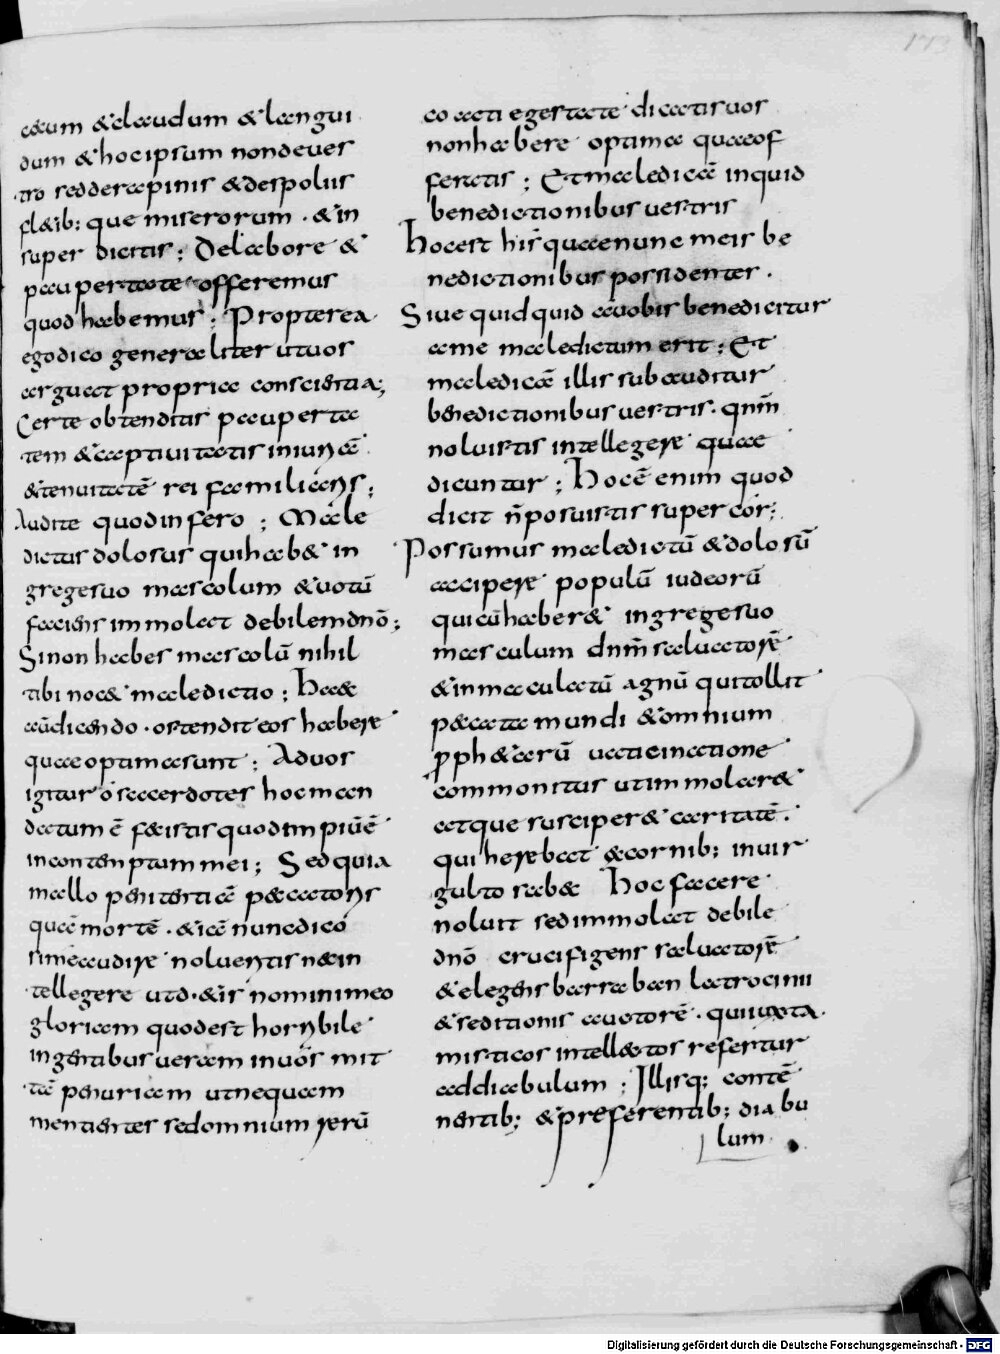 173
cęcum & claudum & langui
dum & hoc ipsum non de ues
tro sed de rapinis & de spoliis
fl&ib; que miserorum . & in
super dicitis ; De labore &
paupertate offeremus
quod habemus ; Propterea
ego dico generaliter ut uos
arguat propria conscientia ;
Certe obtenditis pauperta
tem & captiuitatis iniuriā
& tenuitatē rei familiaris ;
Audite quod infero ; Male
dictus dolosus qui hab& in
grege suo masculum & uotū
faciens immolat debilem dnō ;
Si non habes masculū nihil
tibi noc& maledictio ; Haec
aūdicendo . ostendit eos habere
quae optima sunt ; Ad uos
igitur o sacerdotes hoc man
datum ē & istis quod impiūē
in contemptum mei ; Sed quia
malo penitentiā peccatoris
quā mortē . & iā nunc dico
si me audire nolueritis nec in
tellegere ut d&is nomini meo
gloriam quod est horribile
in gentibus ueram in uos mit
tā penuriam ut nequam
mentientes sed omnium rerū
coacti egestate dicatis uos
non habere optima quae of
feratis ; Et maledicā inquid
benedictionibus uestris
Hoc est his quae nunc meis be
nedictionibus possidentes .
Siue quidquid a uobis benedicitur
a me maledictum erit ; Et
maledicā illis subauditur
benedictionibus uestris . qnm̄
noluistis intellegere quae
dicuntur ; Hoc ē enim quod
dicit n̄ posuistis super cor ;
Possumus maledictū & dolosū
accipere populū iudeorū
qui cū haber& in grege suo
masculum dnm̄ saluatorē
& inmaculatū agnū qui tollit
peccata mundi & omnium
proph&arū uaticinatione
commonitus ut immolar&
atque susciper& caritatē .
qui herebat & cornib; in uir
gulto sabec Hoc facere
noluit sed immolat debile
dnō crucifigens saluatorē
& elegens barraban latrocinii
& seditionis auctorē . qui iuxta
misticos intellectos refertur
ad diabulum ; Illisq; contē
nentib; & preferentib; diabu
lum
Digitalisierung gefördert durch die Deutsche Forschungsgemeinschaft - DFG